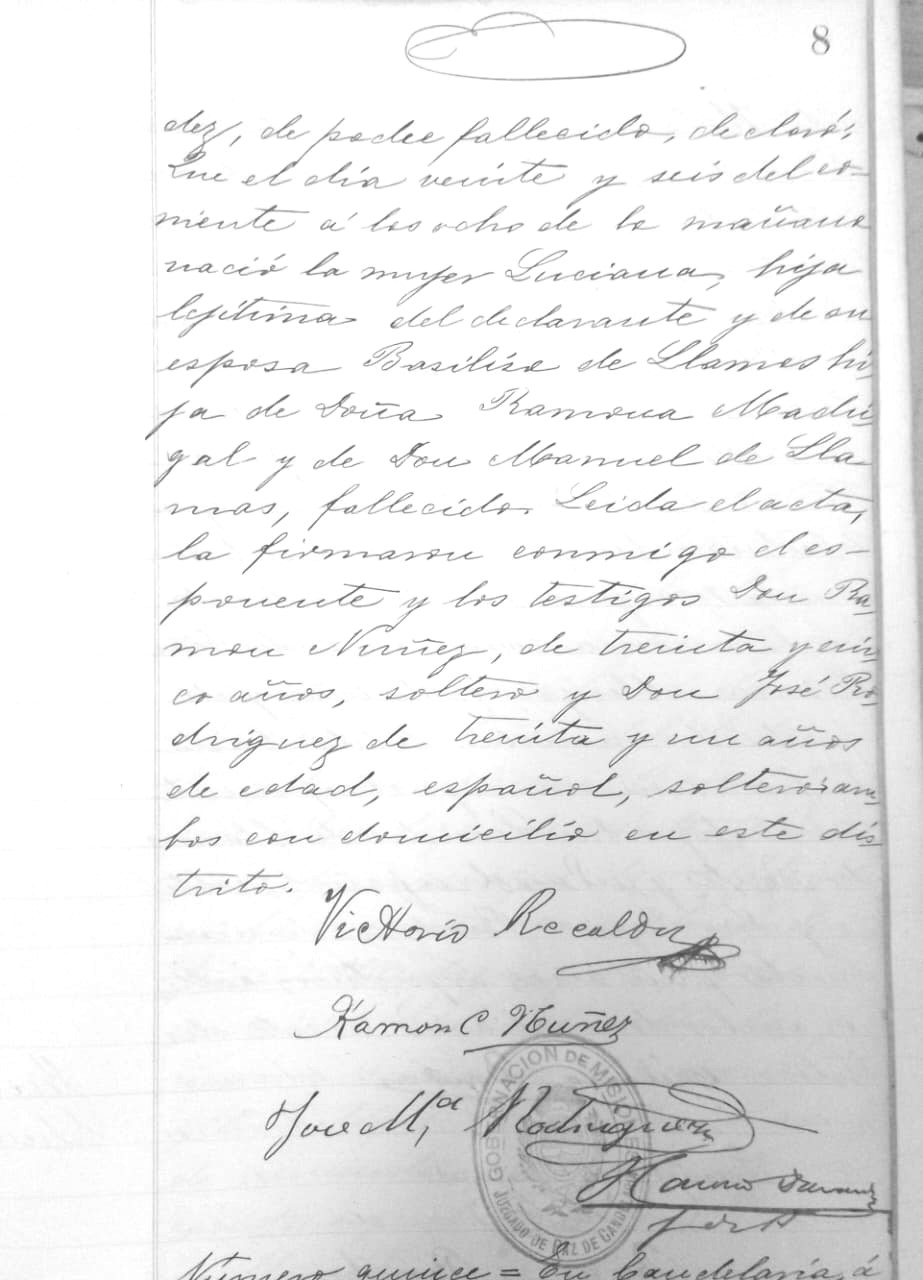 8
dez, de padre fallecido, declaró:
Que el día veinte y seis del co-
rriente á las ocho de la mañana
nació la mujer Luciana, hija
legítima del declarante y de su
esposa Basilisa de Llamas hi-
ja de Doña Ramona Madri-
gal y de Don Manuel de Lla-
mas, fallecido. Leida el acta,
la firmaron conmigo el es-
ponente y los testigos Don Ra-
mon Nuñez, de treinta y cin-
co años, soltero y Don José Ro-
driguez de treinta y un años
de edad, español, soltero: am-
bos con domicilio en este dis-
trito.
Victorio Recalde
Ramon C Nuñez
José Mª Rodriguez
GOBERNACION DE MISIONES
JUZGADO DE PAZ DE CANDELARIA
Número quince = En Candelaria á